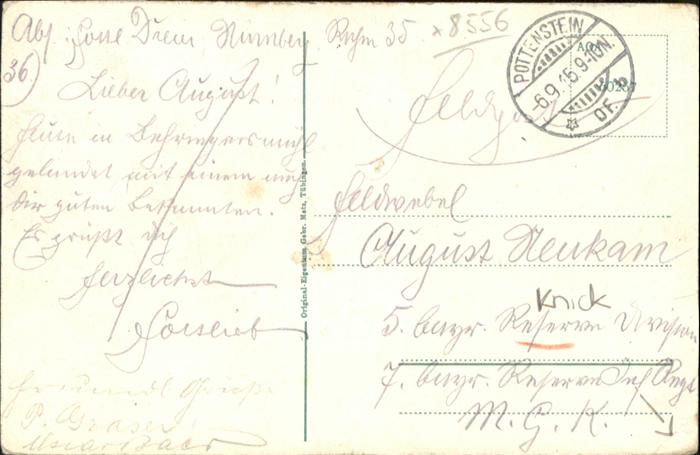 Nürnberg
36)
Lieber August!
Heute in Behringersmühl
gelandet mit einem auch
Dir guten Bekannten.
Es grüßt Dich
herzlichst
Gottlieb
Freundl. Grüße
P.
x 8556
POTTENSTEIN
-6.9.15.9-10N.
OF.
Feldpost
Feldwebel
August Neukam
Knick
5. bayr. Reserve Division
7. bayr. Reserve Inf. Regt
M. G. K.
Original-Eigentum Gebr. Metz, Tübingen.